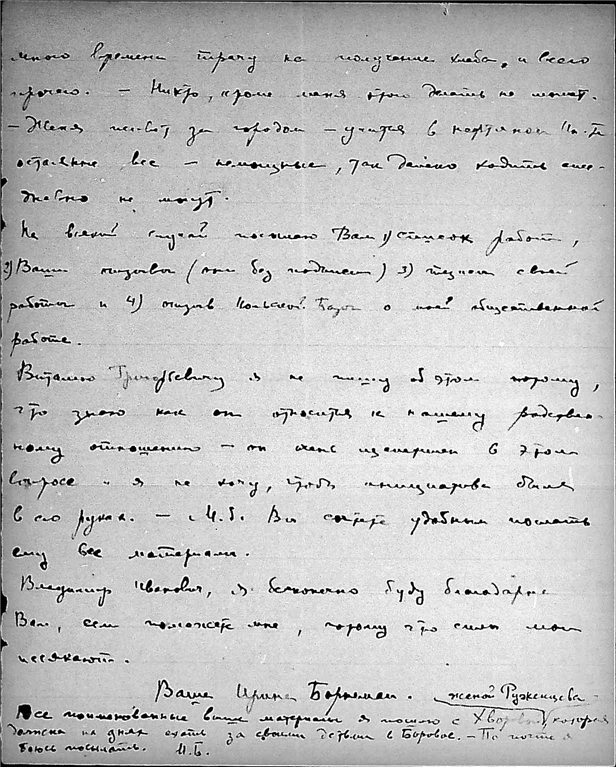 много времени трачу на получение хлеба, и всего
прочего. — Никто, кроме меня этого делать не может.
— Женя живет за городом — учится в нефтяном Ин-те
остальные все — немощные, так далеко ходить еже-
дневно не могут.
На всякий случай посылаю Вам 1) список работ,
2) Ваши отзывы (они без подписи) 3) тезисы своей
работы и 4) отзыв Кольской Базы о моей общественной
работе.
Виталию Григорьевичу я не пишу об этом потому,
что знаю как он относится к нашему родствен-
ному отношению — он очень щепетилен в этом
вопросе и я не хочу, чтобы инициатива была
в его руках. — М.б. Вы сочтете удобным послать
ему все материалы.
Владимир Иванович, я бесконечно буду благодарна
Вам, если поможете мне, потому что силы мои
иссякают.
Ваша Ирина Борнеман. женой Руженцева
Все поименованные выше материалы я пошлю с Хворовой, которая
должна на днях ехать за своими детьми в Боровое. — По почте я
боюсь посылать. И.Б.